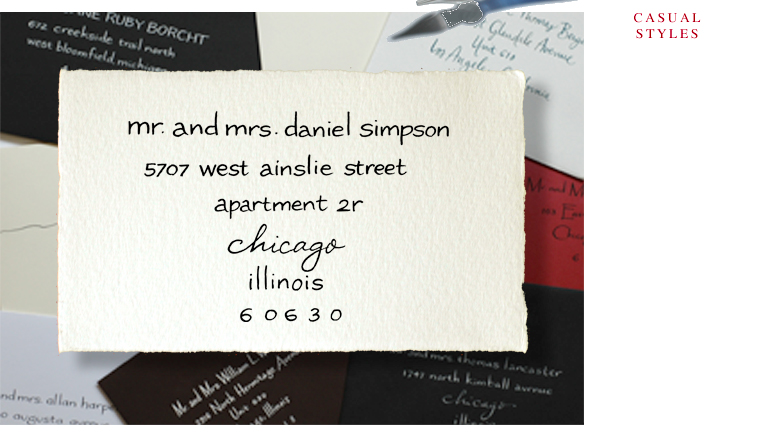 CASUAL
STYLES
RUBY BORCHT
672 creekside trail north
west bloomfield, michigan
Glendale Avenue
Unit 610
Los Angeles, California
mr. and mrs. daniel simpson
5707 west ainslie street
apartment 2r
chicago
illinois
60630
Mr. and M
Chic
6
and mrs. allan harp
o augusta
Mr. and Mrs. William L.
North Hermitage Avenue
Unit
Illinois
and mrs. thomas lancaster
1747 north kimball avenue
chicago
illi